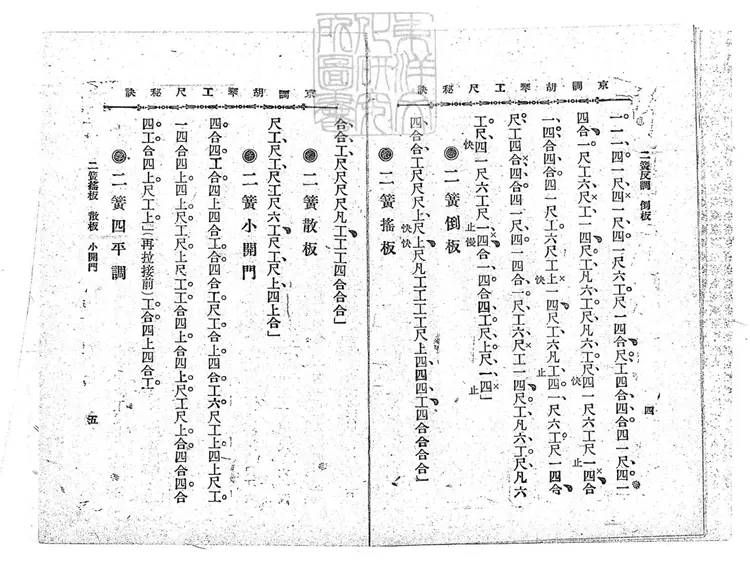 京調胡琴工尺秘訣
二簧反調 倒板 四
一一一四一尺四一尺四一尺六工尺一四合尺工四合四合四一尺四一
四合一尺工六尺工一四尺工凡六工尺凡六工尺四一尺六工尺一四合
快 止
一四合四合四一尺工六尺工上一四尺工六凡工四一尺六工尺一四合
快 止
尺工四合四合四一尺四一四合一尺工六尺工一四尺工凡六工尺凡六
工尺四一尺六工尺一四合一四合四工尺上尺一四」
快 止慢 止
二簧倒板
四合合工尺尺尺上尺上尺凡工工工工尺上四四四工四合合合合」
快快
二簧搖板
京調胡琴工尺秘訣
合合工尺尺尺尺凡工工工四合合合」
二簧散板
尺工尺工尺工尺六工尺工尺上四上合」
二簧小開門
四合四工合四上四合工合四合工尺工合上四合工六尺工上四上尺工
一四合四上四上尺工尺上尺工工合四上合四上尺工尺上合四合四合
四工合四上尺工上」(再拉接前)工合四上四合工
二簧四平調
二簧搖板 散板 小開門 五